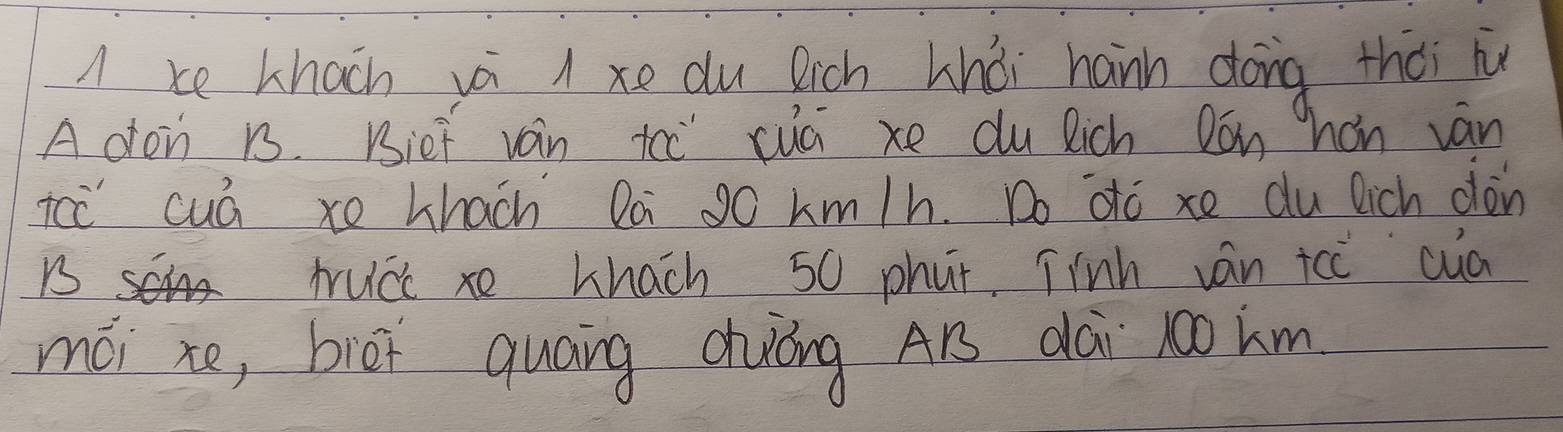 1 xe khách và 1 xe du lịch khởi hành đồng thời từ
A đến B. Biết vận tốc của xe du lịch lớn hơn vận
tốc của xe khách là 20 km/h. Do đó xe du lịch đến
B trước xe khách 50 phút. Tính vận tốc của
mỗi xe, biết quãng đường AB dài 100 km.